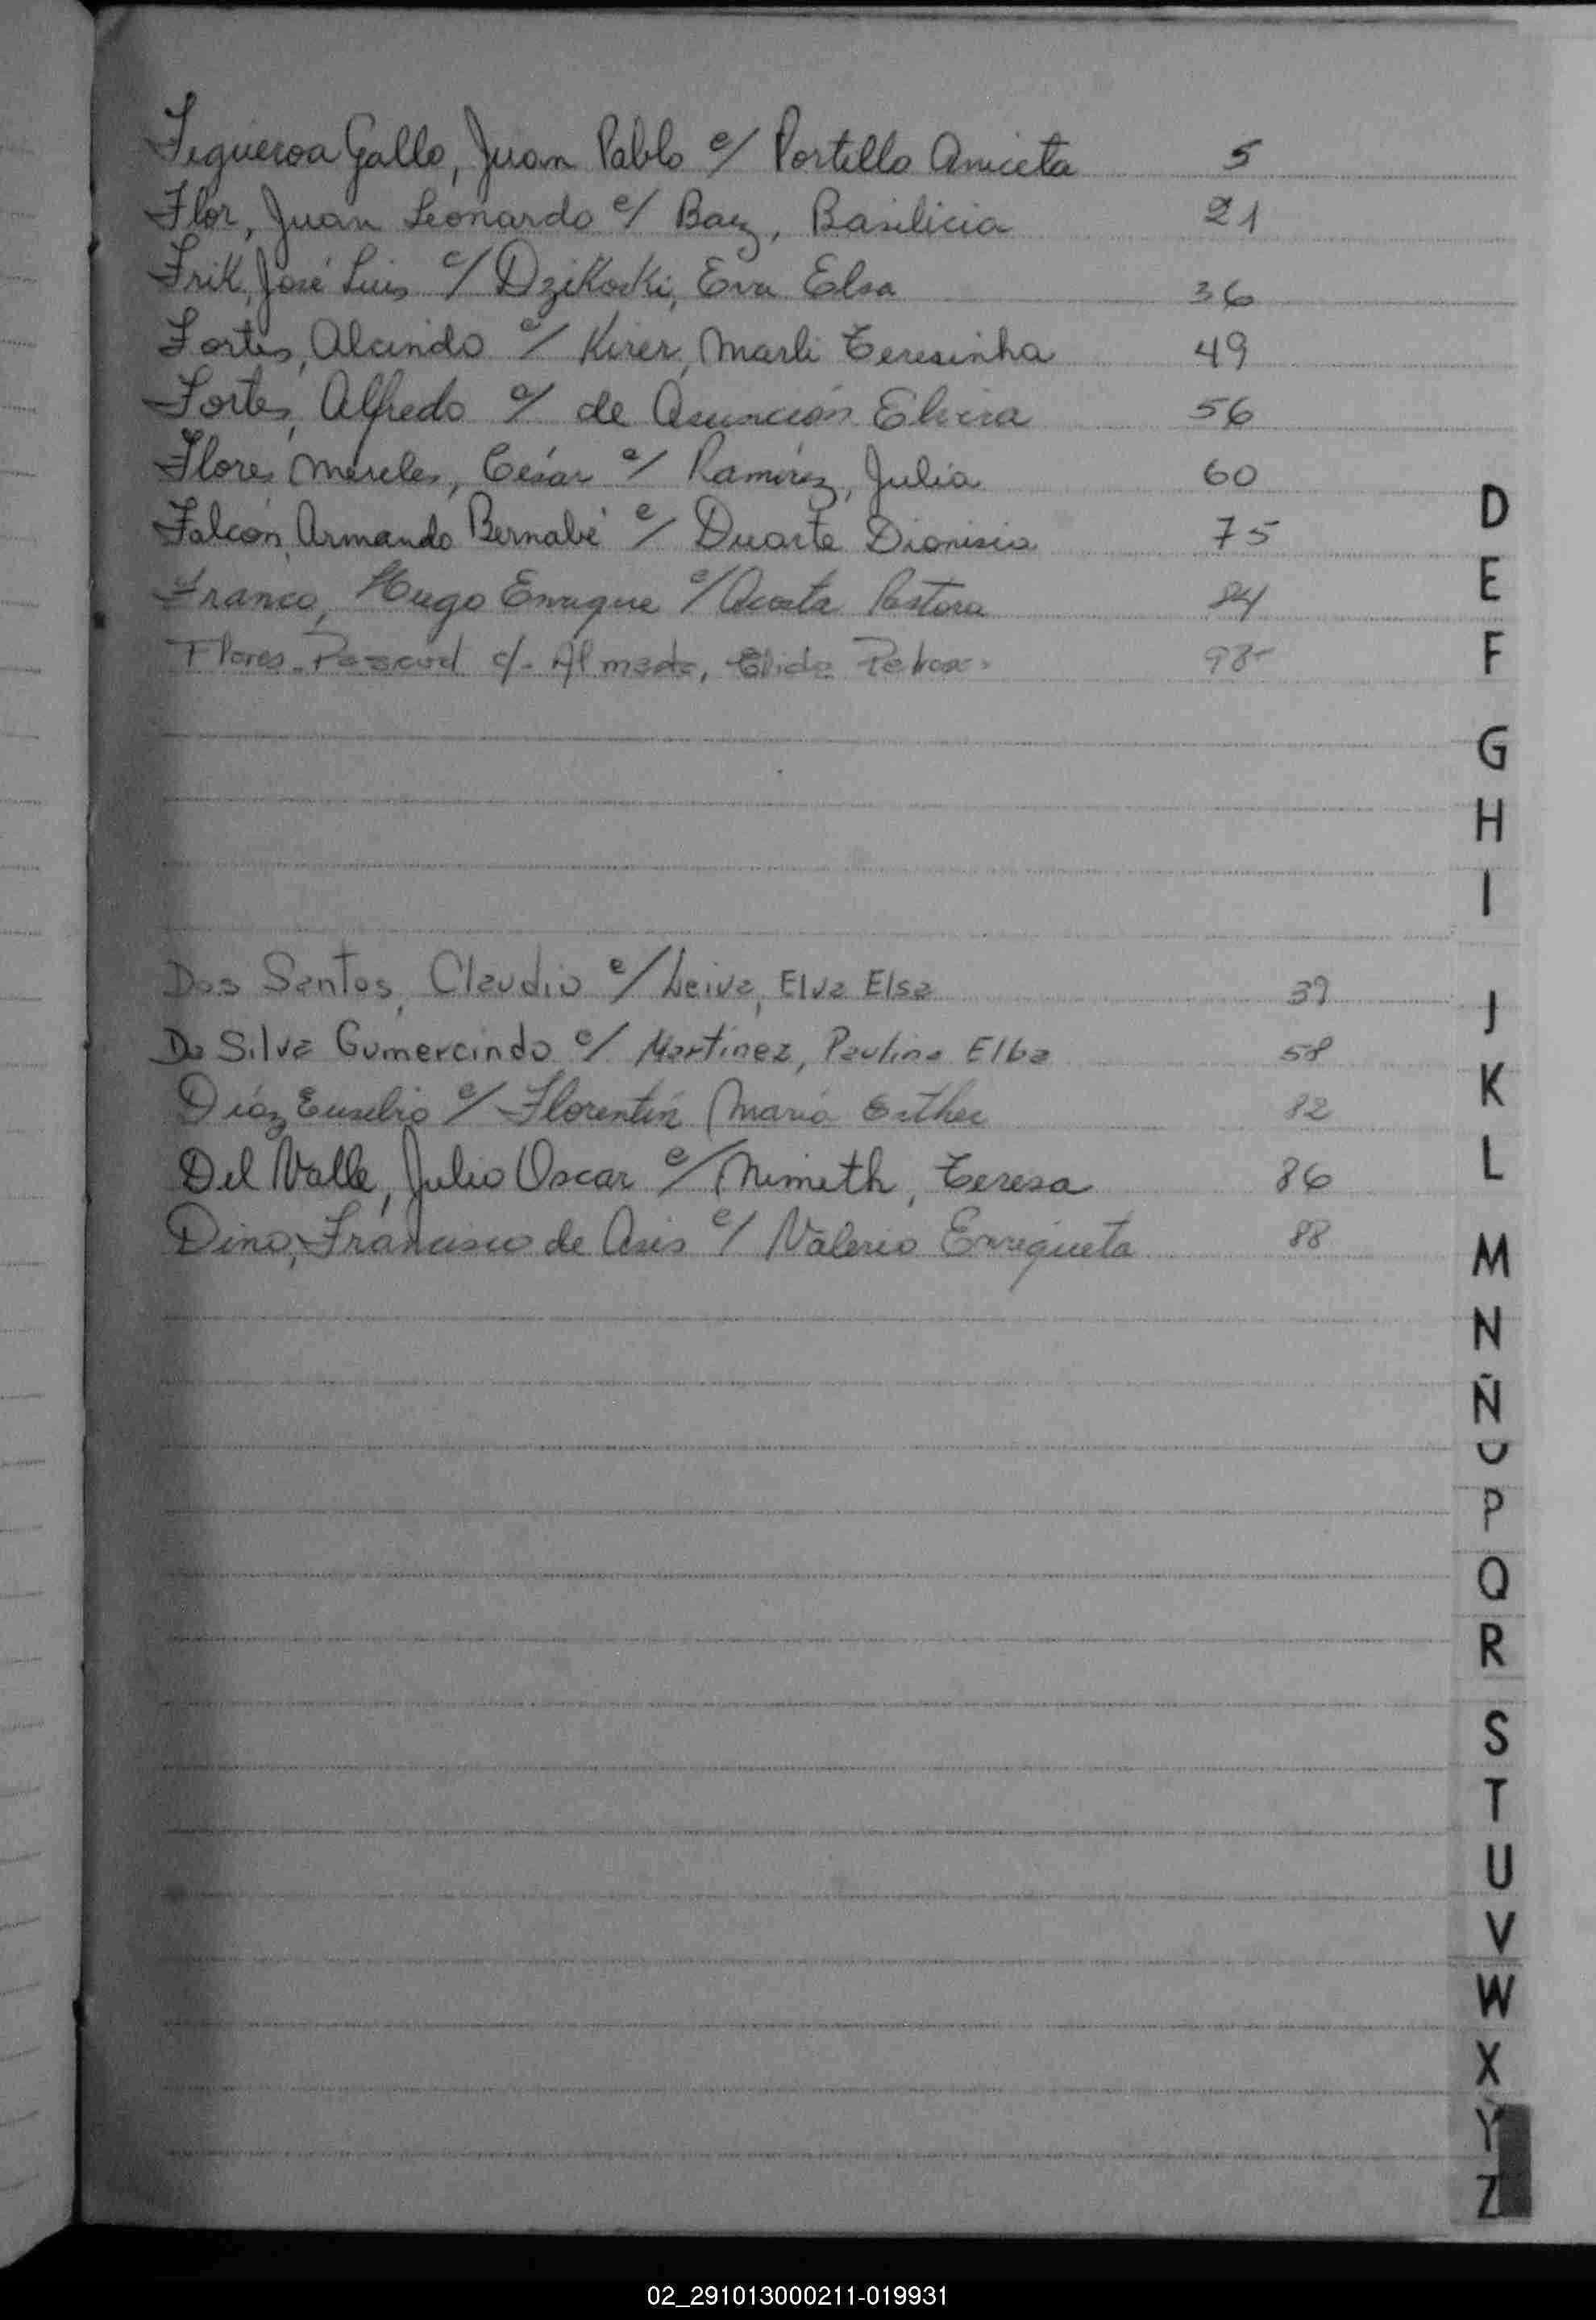 Figueroa Gallo, Juan Pablo c/ Portillo Aniceta 5
Flor, Juan Leonardo c/ Baez, Basilicia 21
Frik, José Luis c/ Dzikoski, Eva Elsa 36
Fortes, Alcindo c/ Kirer, Marli Teresinha 49
Fortes, Alfredo c/ de Asunción Elvira 56
Flores Mereles, César c/ Ramírez, Julia 60
Falcón, Armando Bernabé c/ Duarte Dionisia 75
Franco, Hugo Enrique c/ Acosta Pastora 84
Flores c/- Almada, Elida 98-
Dos Santos, Claudio c/ Leiva, Elva Elsa 39
Da Silva Gumercindo c/ Martínez, Paulina Elba 58
Diáz Eusebio c/ Florentín María Esther 82
Del Valle, Julio Oscar c/ Nimeth, Teresa 86
Dino, Francisco de Asis c/ Valerio Enriqueta 88
D
E
F
G
H
I
J
K
L
M
N
Ñ
O
P
Q
R
S
T
U
V
W
X
Y
Z
02_291013000211-019931